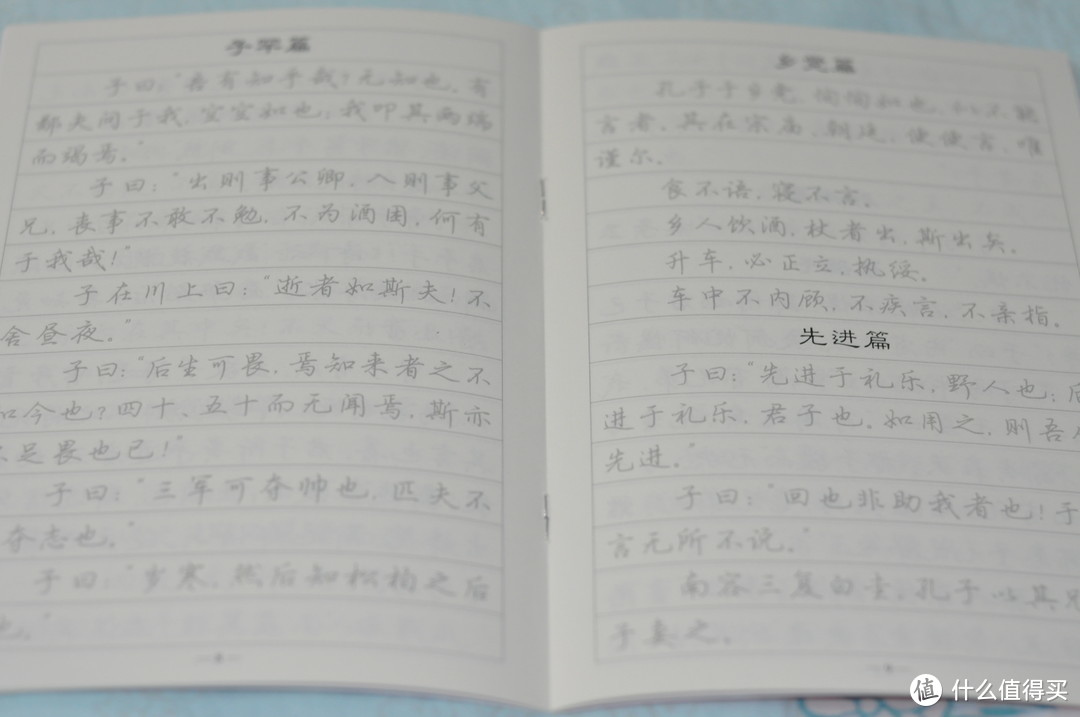 子罕篇
子曰："吾有知乎哉？无知也。有
鄙夫问于我，空空如也，我叩其两端
而竭焉。"
子曰："出则事公卿，入则事父
兄，丧事不敢不勉，不为酒困，何有
于我哉！
子在川上曰："逝者如斯夫！不
舍昼夜。"
子曰："后生可畏，焉知来者之不
如今也？四十、五十而无闻焉，斯亦
不足畏也已！"
子曰："三军可夺帅也，匹夫不
夺志也。"
子曰："岁寒，然后知松柏之后
也。"
乡党篇
孔子于乡党，恂恂如也，似不能
言者。其在宗庙、朝廷，便便言，唯
谨尔。
食不语，寝不言。
乡人饮酒，杖者出，斯出矣。
升车，必正立，执绥。
车中不内顾，不疾言，不亲指。
先进篇
子曰："先进于礼乐，野人也；后
进于礼乐，君子也。如用之，则吾从
先进。"
子曰："回也非助我者也！于
言无所不说。"
南容三复白圭，孔子以其兄
子妻之。
值 什么值得买